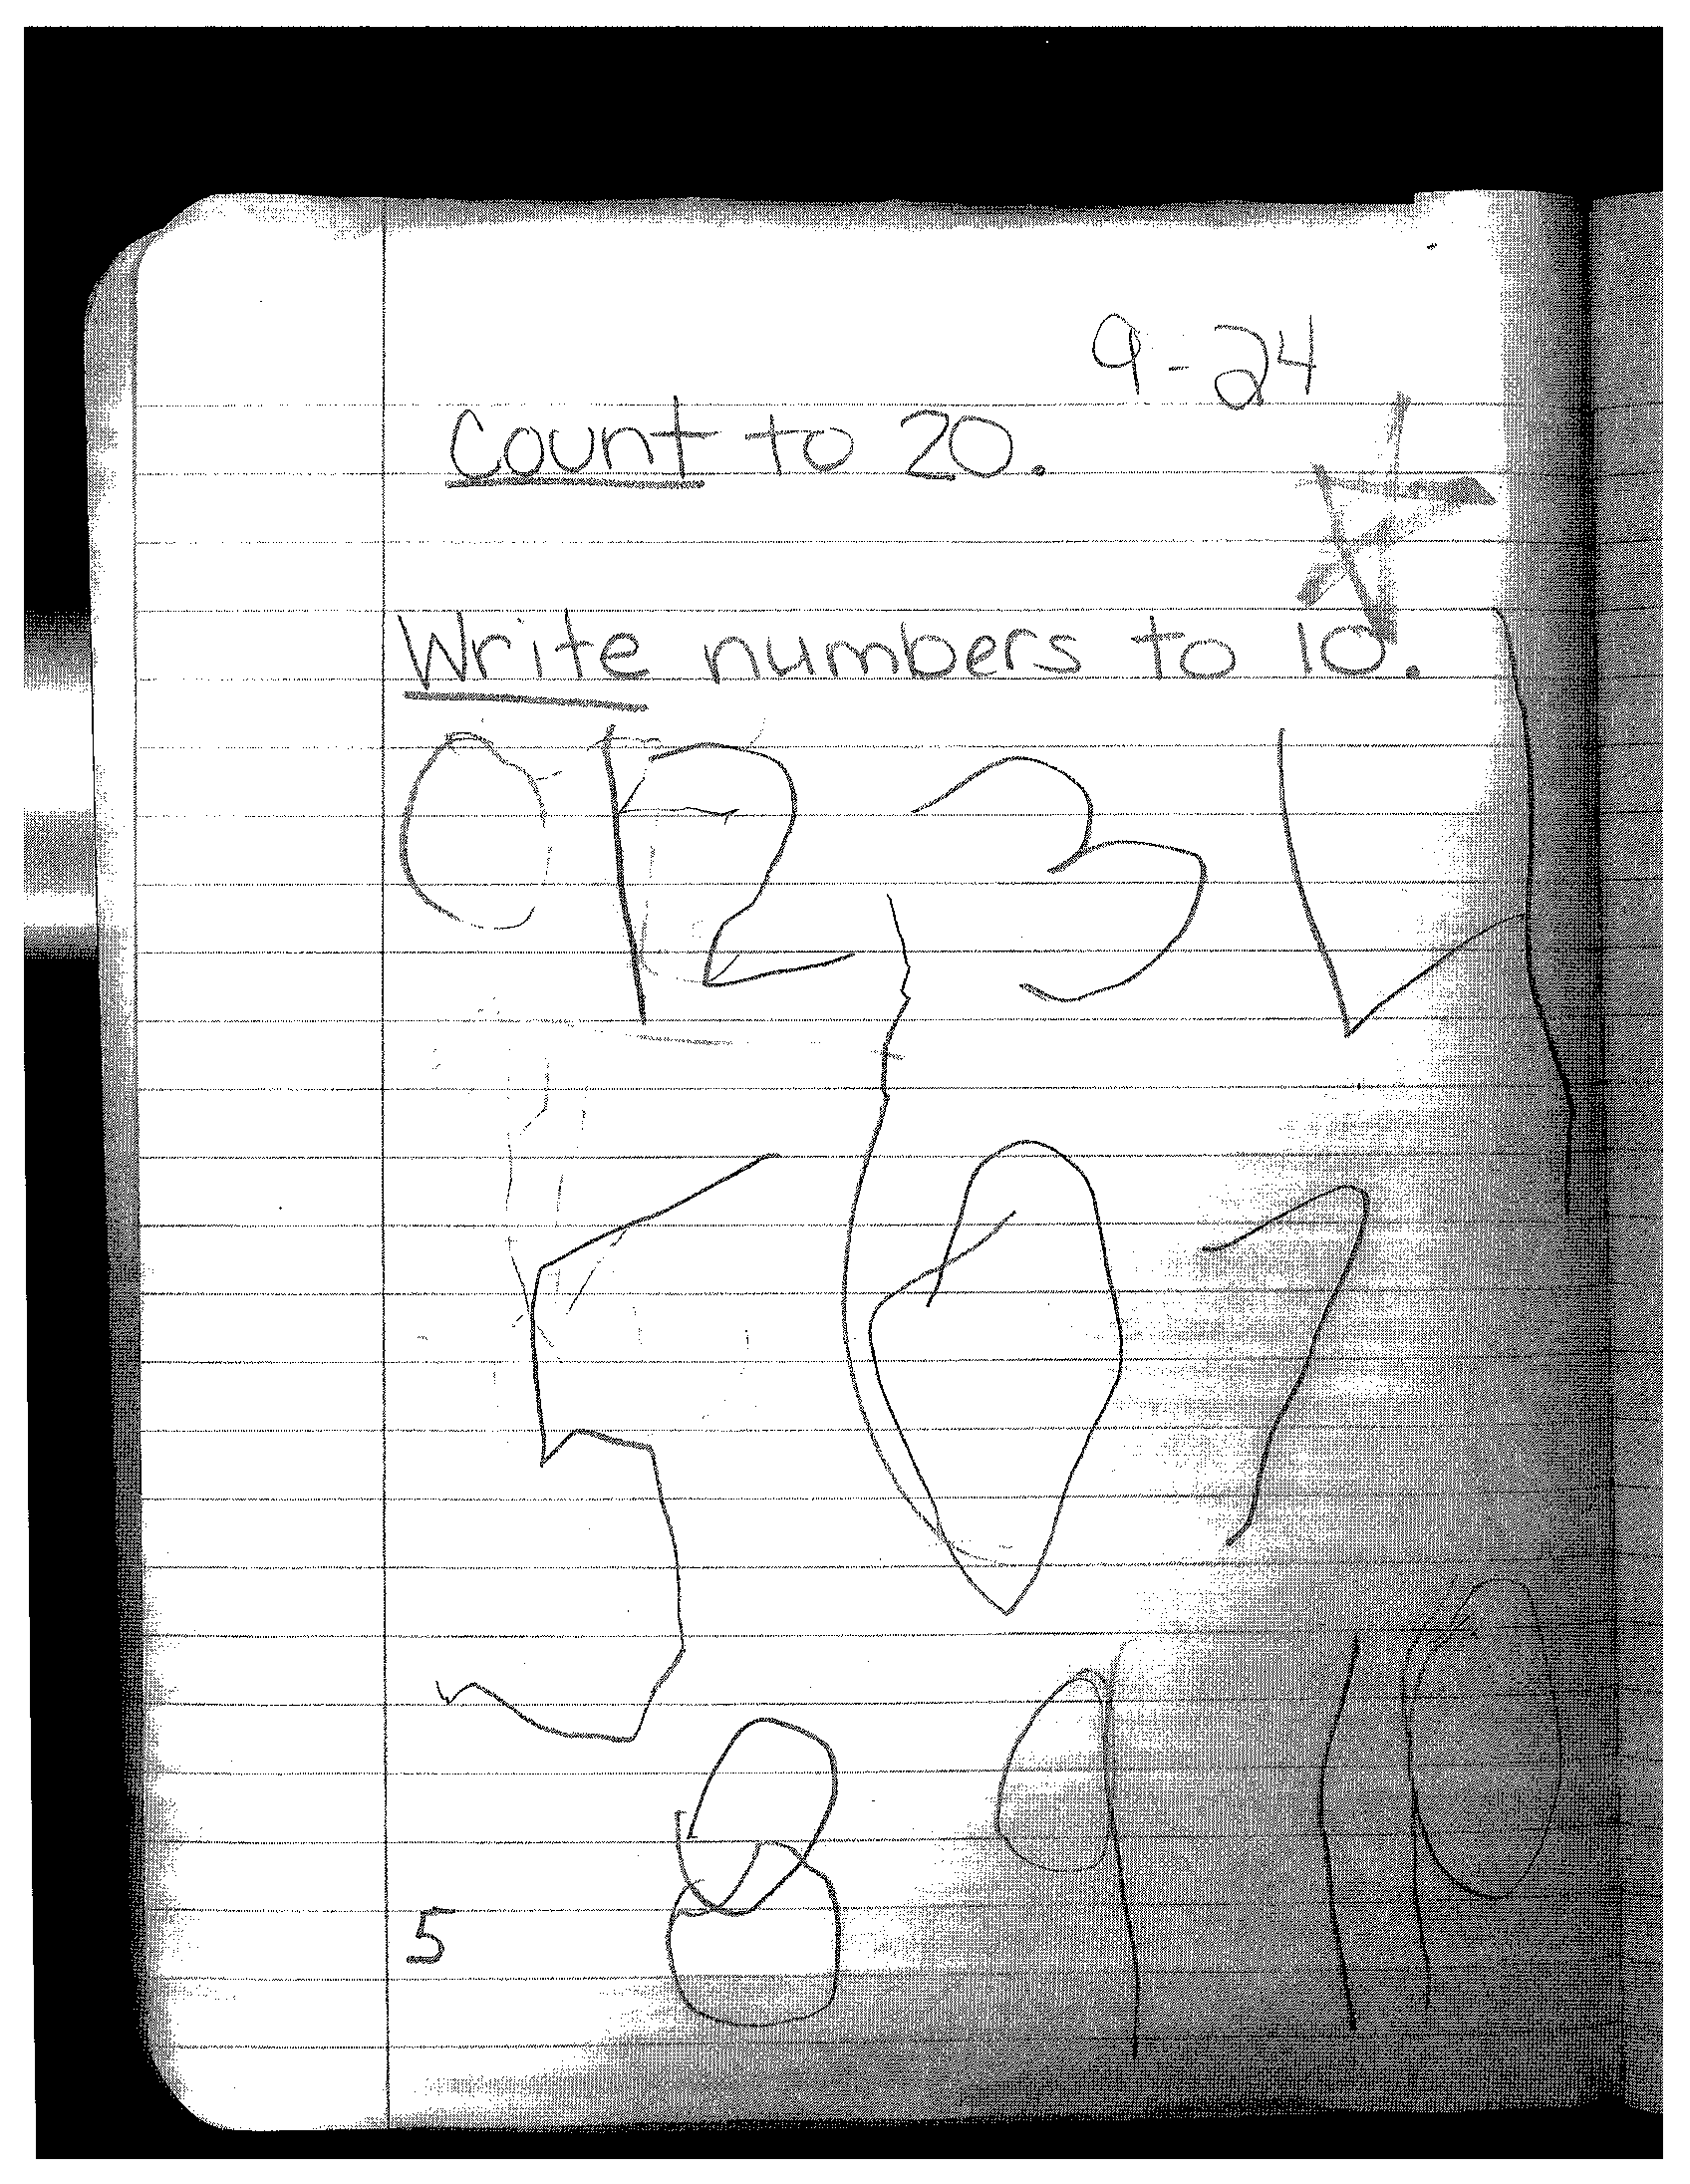 9-24
Count to 20.
Write numbers to 10.
0 1 2 3 4
5 6 7
8 9 10
5